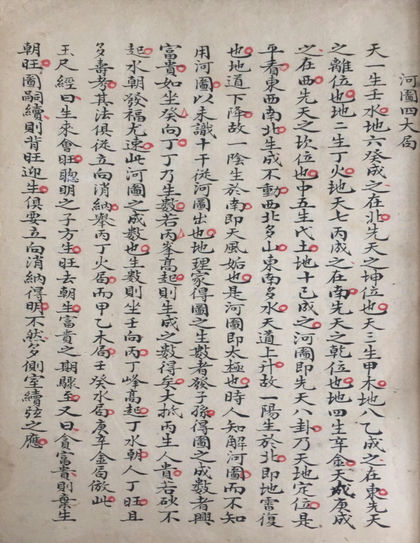 河圖四大局
天一生壬水地六癸成之在北先天之坤位也天三生甲木地八乙成之在東先天
之離位也地二生丁火地天七丙成之在南先天之乾位也地四生辛金天成庚成
之在西先天之坎位也中五生戊土地十己成之河圖即先天八卦乃天地定位是
平看東西南北生成不動西北多山東南多水天道上升故一陽生於北即地雷復
也地道下降故一陰生於南即天風姤也是河圖即太極也時人知解河圖而不知
用河圖以未識十干從河圖出也地理家得圖之生數者發子孫得圖之成數者興
富貴如坐癸向丁丁乃生數若丙峯高起則生成之數得矣大抵丙生人貴若砂不
起水朝發福尤速此河圖之成數也生數則坐壬向丙丁峰高起丁水朝人丁旺且
多壽考其法俱從立向消納舉丙丁火局而甲乙木局壬癸水局庚辛金局倣此
玉尺經曰生來會旺聰明之子方生旺去朝生富貴之期驟至又曰貪富貴則棄生
朝旺圖嗣續則背旺迎生俱要立向消納得明不然多側室續弦之應